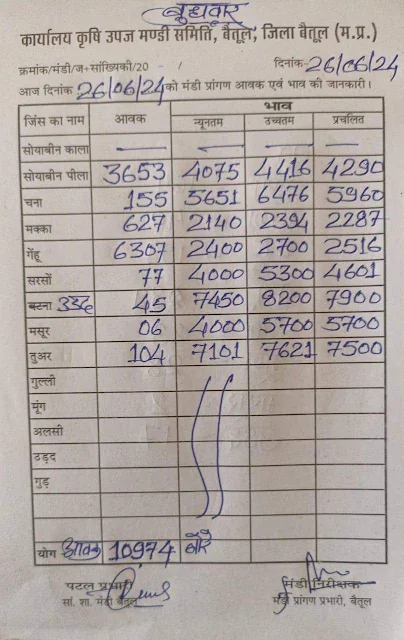 बुधवार
कार्यालय कृषि उपज मण्डी समिति, बैतूल, जिला बैतूल (म.प्र.)
क्रमांक/मंडी/ज+सांख्यिकी/20 - / दिनांक-26/06/24
आज दिनांक 26/06/24 को मंडी प्रांगण आवक एवं भाव की जानकारी।
जिंस का नाम आवक भाव
न्यूनतम उच्चतम प्रचलित
सोयाबीन काला — — — —
सोयाबीन पीला 3653 4075 4416 4290
चना 155 5651 6476 5960
मक्का 627 2140 2394 2287
गेंहू 6307 2400 2700 2516
सरसों 77 4000 5300 4601
बटना उड़द 45 7450 8200 7900
मसूर 06 4000 5700 5700
तुअर 104 7101 7621 7500
गुल्ली
मूंग
अलसी
उड़द
गुड़
योग आवक 10974 बोरे
पटल प्रभारी मंडी निरीक्षक
सां. शा. मंडी बैतूल मंडी प्रांगण प्रभारी, बैतूल